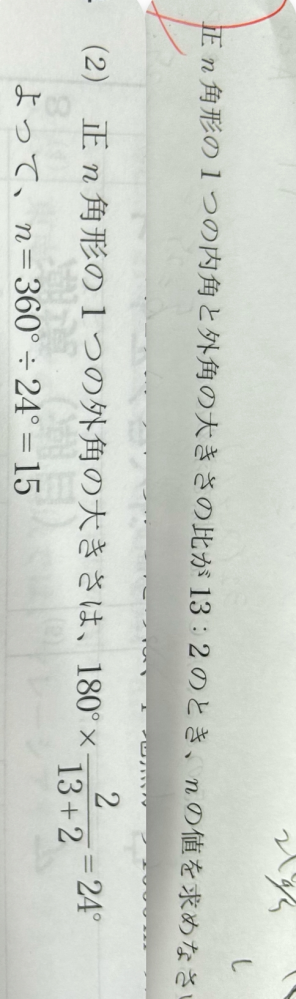 正n角形の1つの内角と外角の大きさの比が13:2のとき、nの値を求めなさい
(2) 正n角形の1つの外角の大きさは、180°×2/(13+2)=24°
よって、n=360°÷24°=15